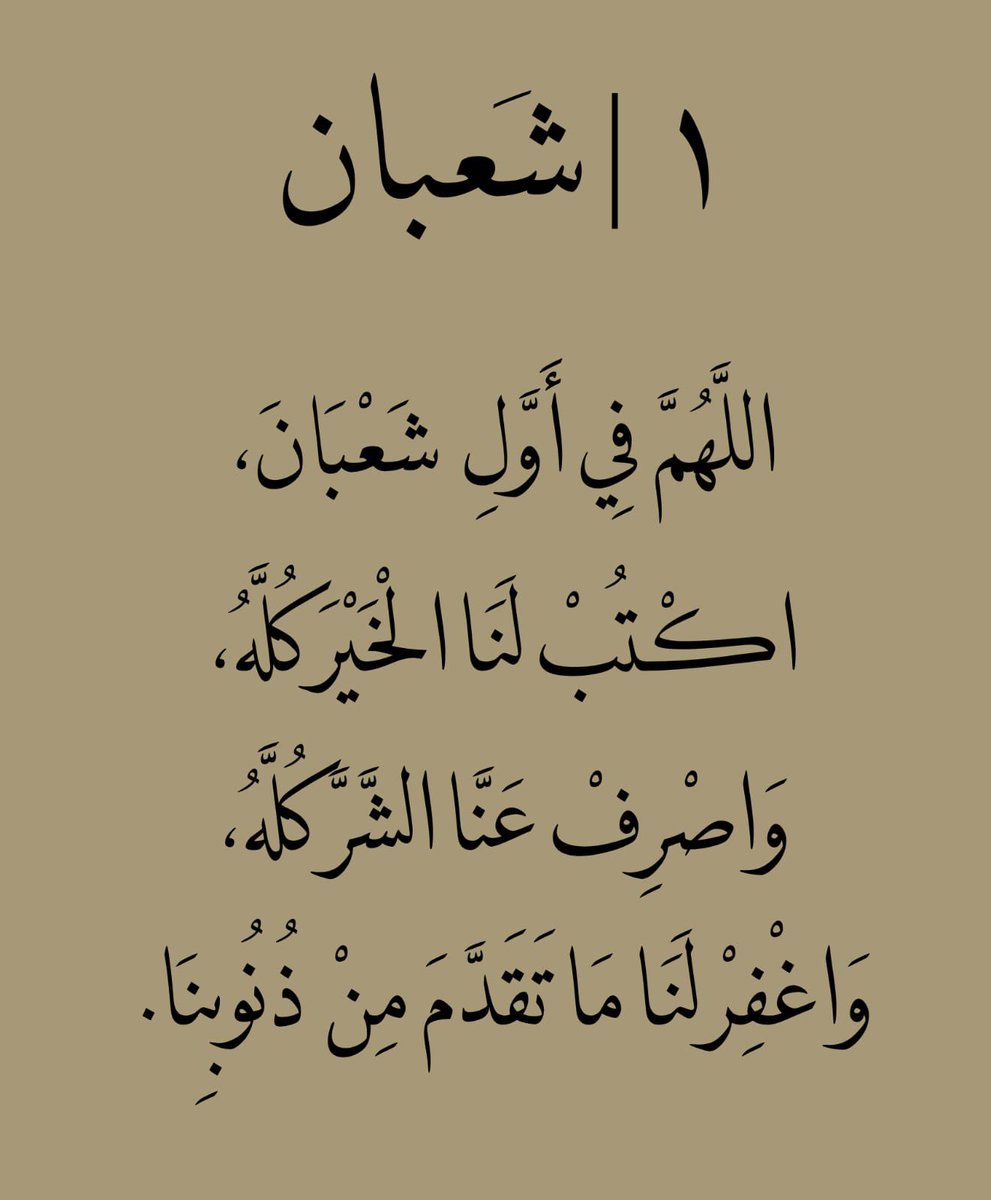 ١ | شَعبان
اللَّهُمَّ فِي أَوَّلِ شَعْبَانَ،
اكْتُبْ لَنَا الْخَيْرَ كُلَّهُ،
وَاصْرِفْ عَنَّا الشَّرَّ كُلَّهُ،
وَاغْفِرْ لَنَا مَا تَقَدَّمَ مِنْ ذُنُوبِنَا.